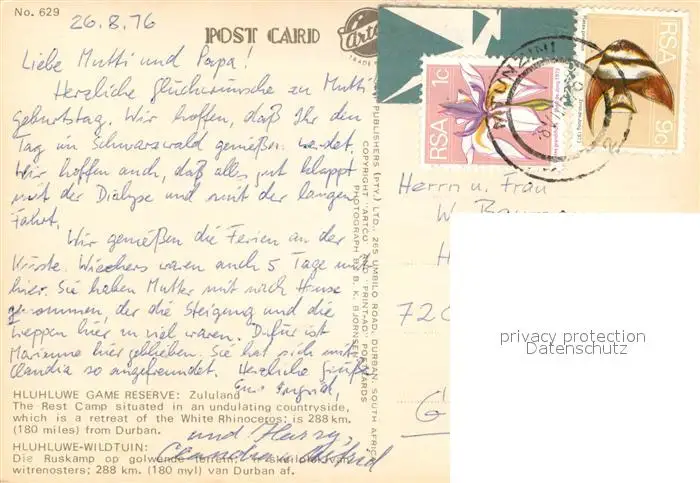 No. 629
26.8.76
POST CARD
Artco
TRADE
Liebe Mutti und Papa!
Herzliche Glückwünsche zu Mutti
Geburtstag. Wir hoffen, daß Ihr den
Tag im Schwarzwald genießen werdet.
Wir hoffen auch, daß alles gut klappt
mit der Dialyse und mit der langen
Fahrt.
Wir genießen die Ferien an der
Küste. Wiechers waren auch 5 Tage mit
hier. Sie haben Mutter mit nach Hause
genommen, der die Steigung und die
Treppen hier zu viel waren. Dafür ist
Marianne hier geblieben. Sie hat sich mit
Claudia so angefreundet. Herzliche Grüße
Eure Ingrid,
und Harry,
Claudia u. Astrid
HLUHLUWE GAME RESERVE: Zululand
The Rest Camp situated in an undulating countryside,
which is a retreat of the White Rhinoceros; is 288 km.
(180 miles) from Durban.
HLUHLUWE-WILDTUIN:
Die Ruskamp op golwende terrein;
witrenosters; 288 km. (180 myl) van Durban af.
PUBLISHERS (PTY.) LTD., 265 UMBILO ROAD, DURBAN, SOUTH AFRICA
COPYRIGHT "ARTCO" AND "PRINT-AD" POSTCARDS
PHOTOGRAPH BY B. K. BJORNSEN
RSA 1c
RSA
9c
MTUNZINI
Herrn u. Frau
W.
H
720
G
privacy protection
Datenschutz